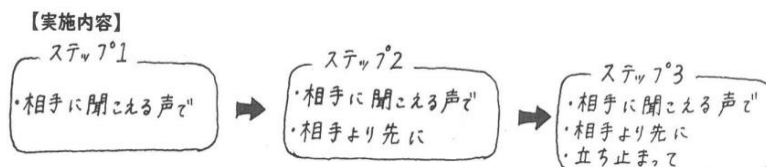 【実施内容】
ステップ1
・相手に聞こえる声で
ステップ2
・相手に聞こえる声で
・相手より先に
ステップ3
・相手に聞こえる声で
・相手より先に
・立ち止まって